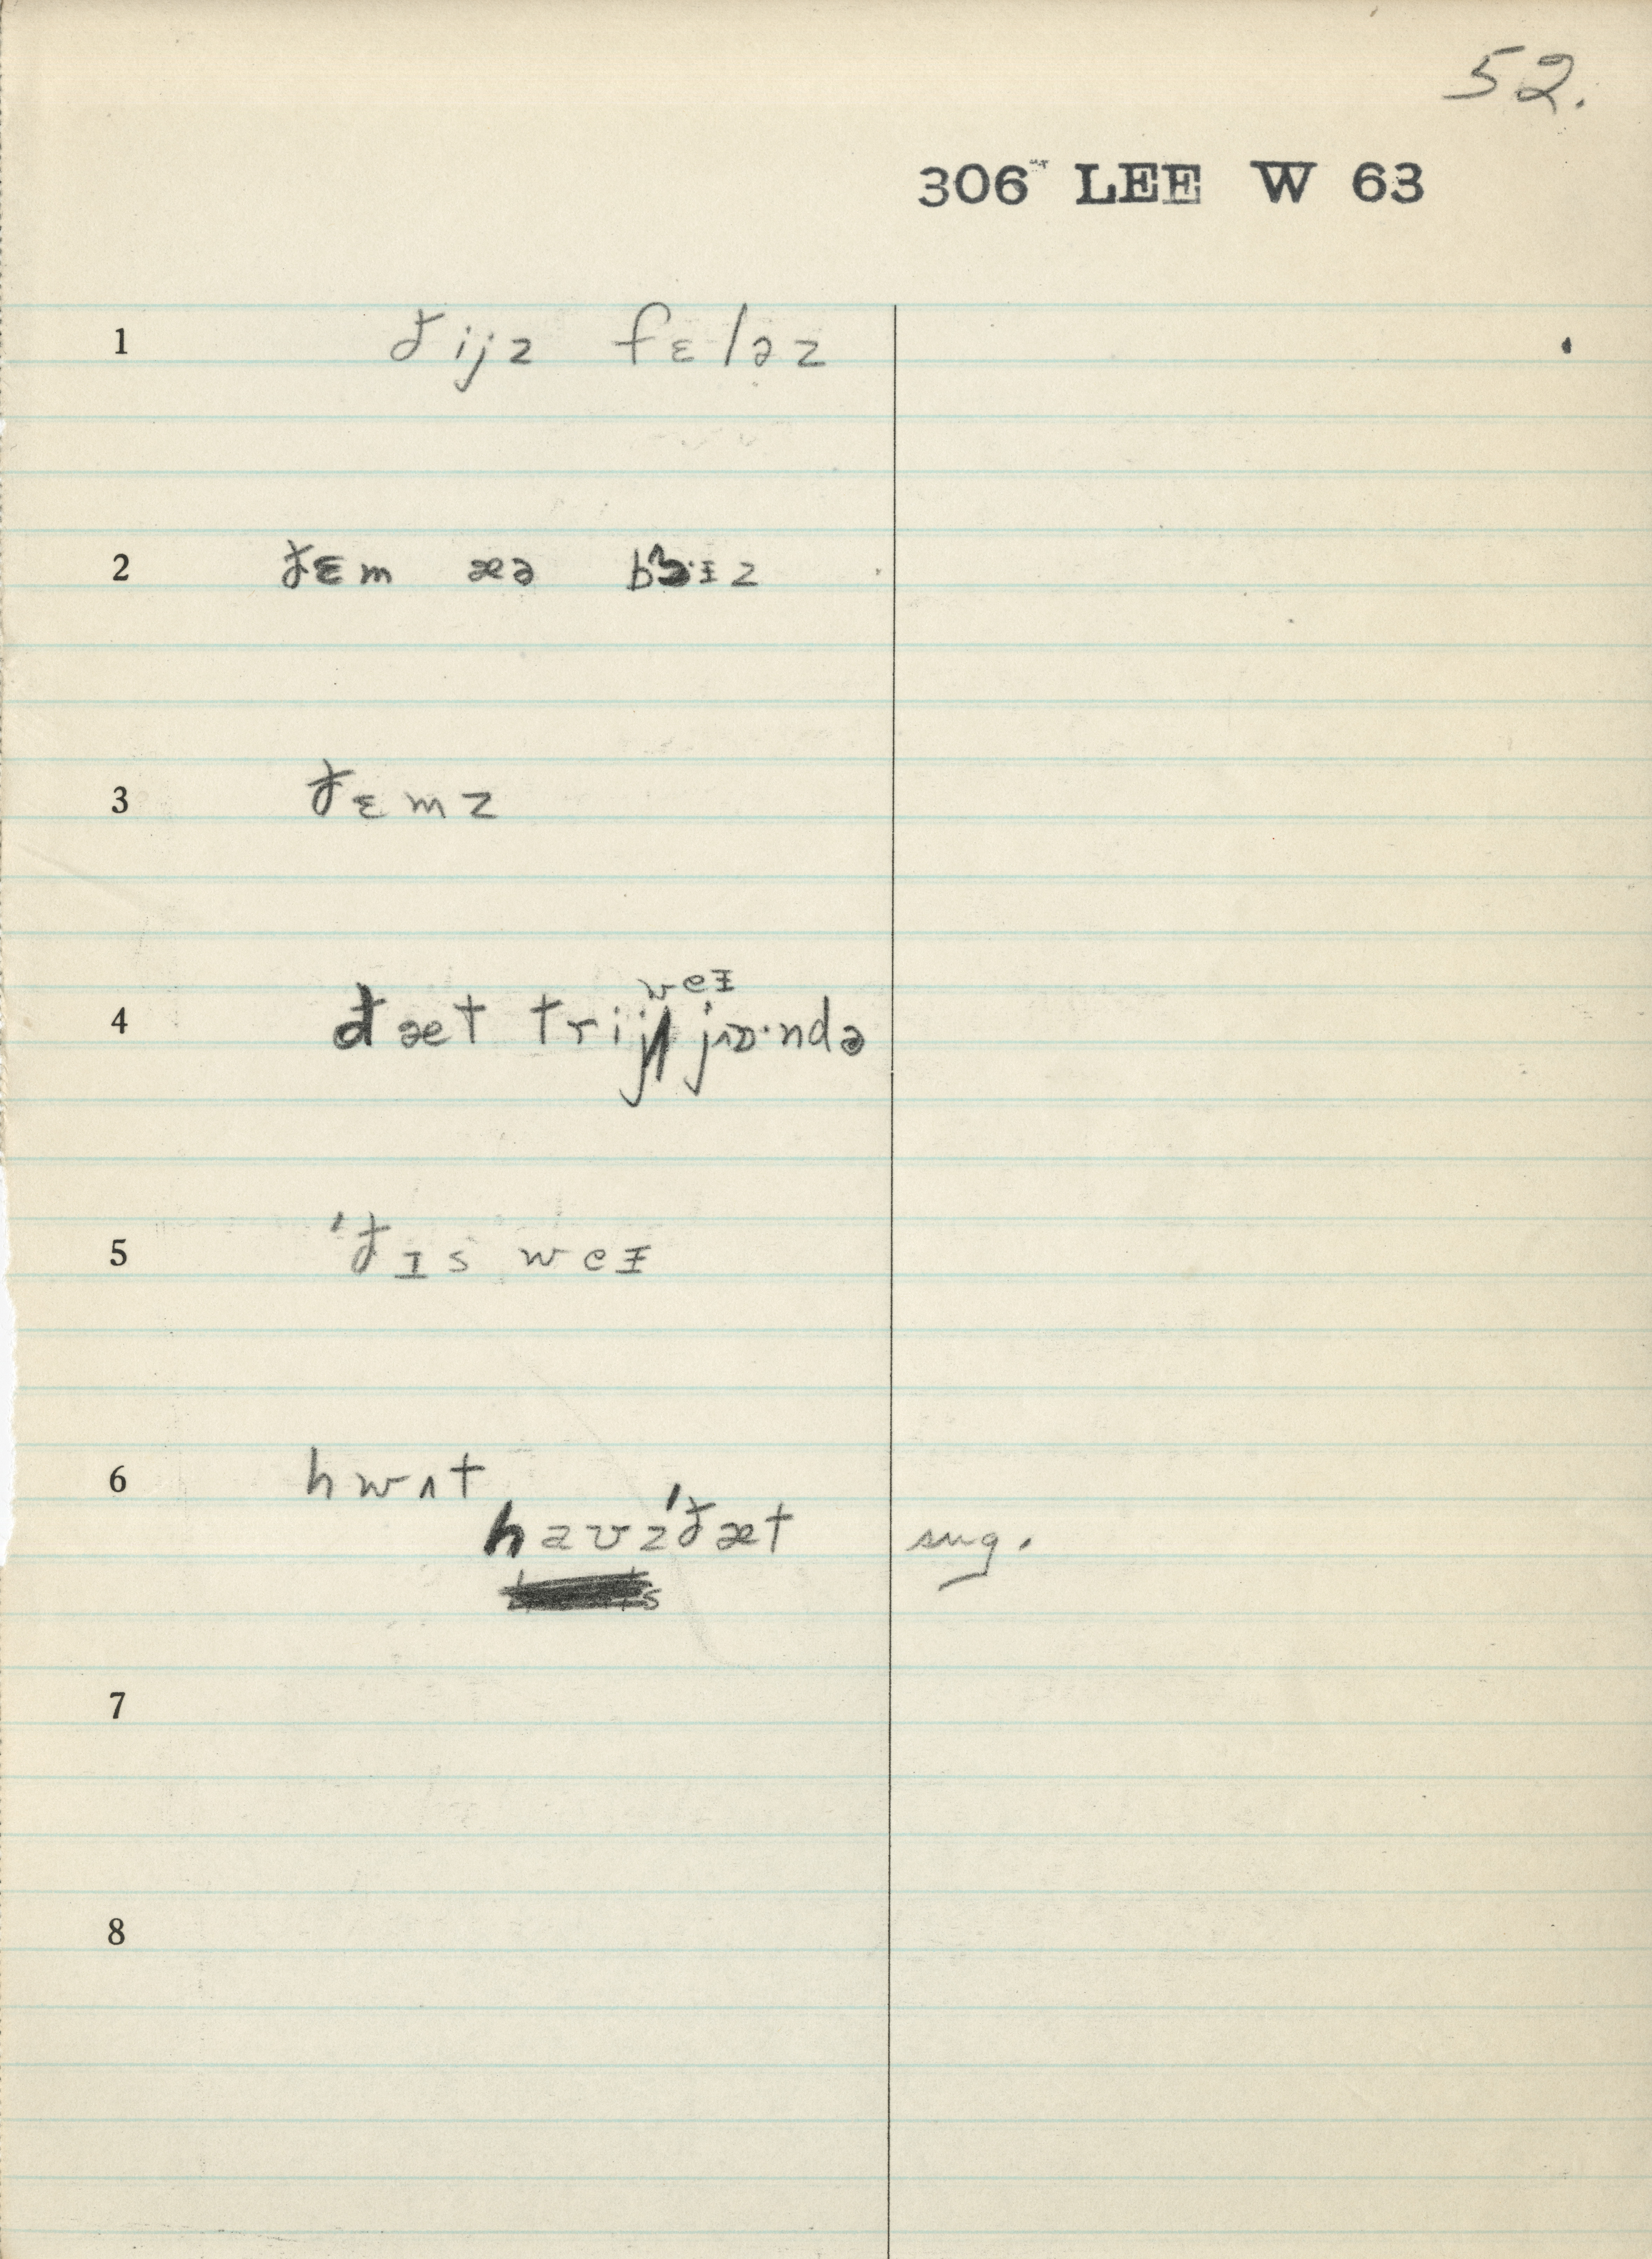 52.
306 LEE W 63
1 ðijz fɛləz
2 ðɛm æə
3 ðɛmz
4 ðæt trij weᵻ jɒ·ndə
5 'ðɪs weᵻ
6 hwʌt
havz'ðæt sug.
7
8